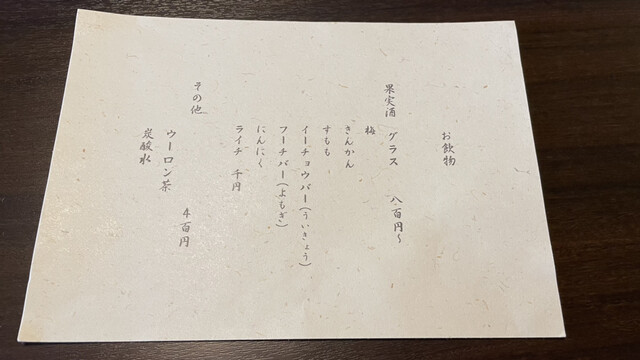 お飲物
果実酒 グラス 八百円~
梅
きんかん
すもも
イーチョウバー(ういきょう)
フーチバー(よもぎ)
にんにく
ライチ 千円
その他
ウーロン茶 4百円
炭酸水